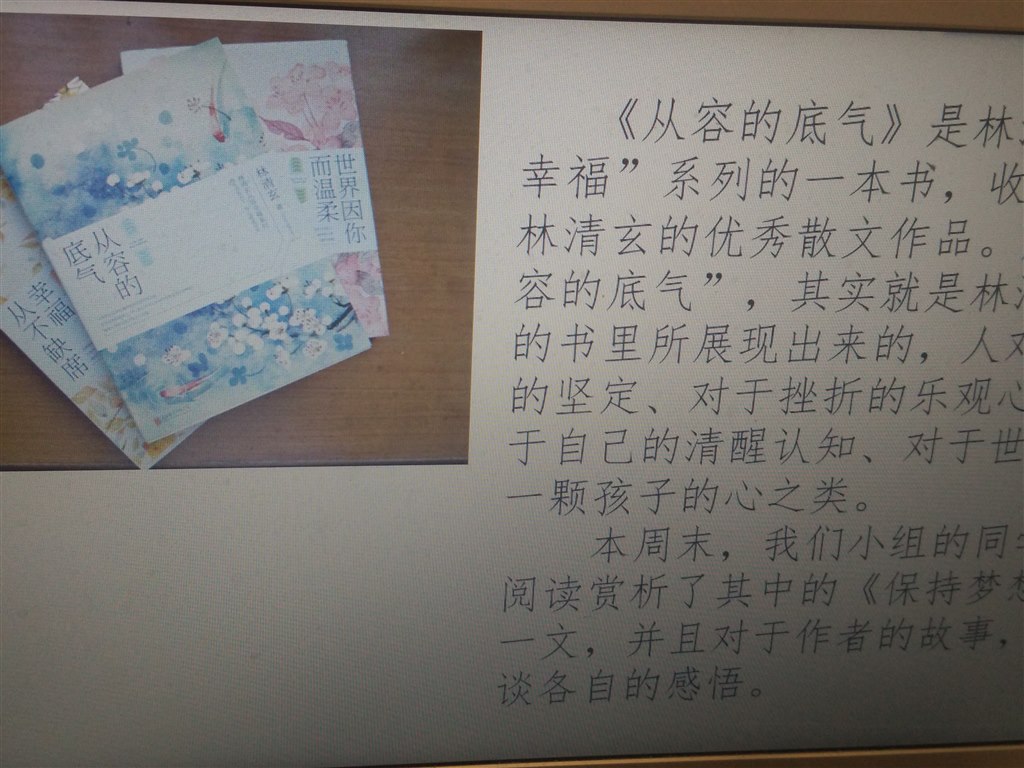 世界因你
而温柔
林清玄
从容的
底气
幸福
从不缺席
《从容的底气》是林
幸福”系列的一本书，收
林清玄的优秀散文作品。
容的底气”，其实就是林
的书里所展现出来的，人对
的坚定、对于挫折的乐观心
于自己的清醒认知、对于世
一颗孩子的心之类。
本周末，我们小组的同
阅读赏析了其中的《保持梦想
一文，并且对于作者的故事，
谈各自的感悟。